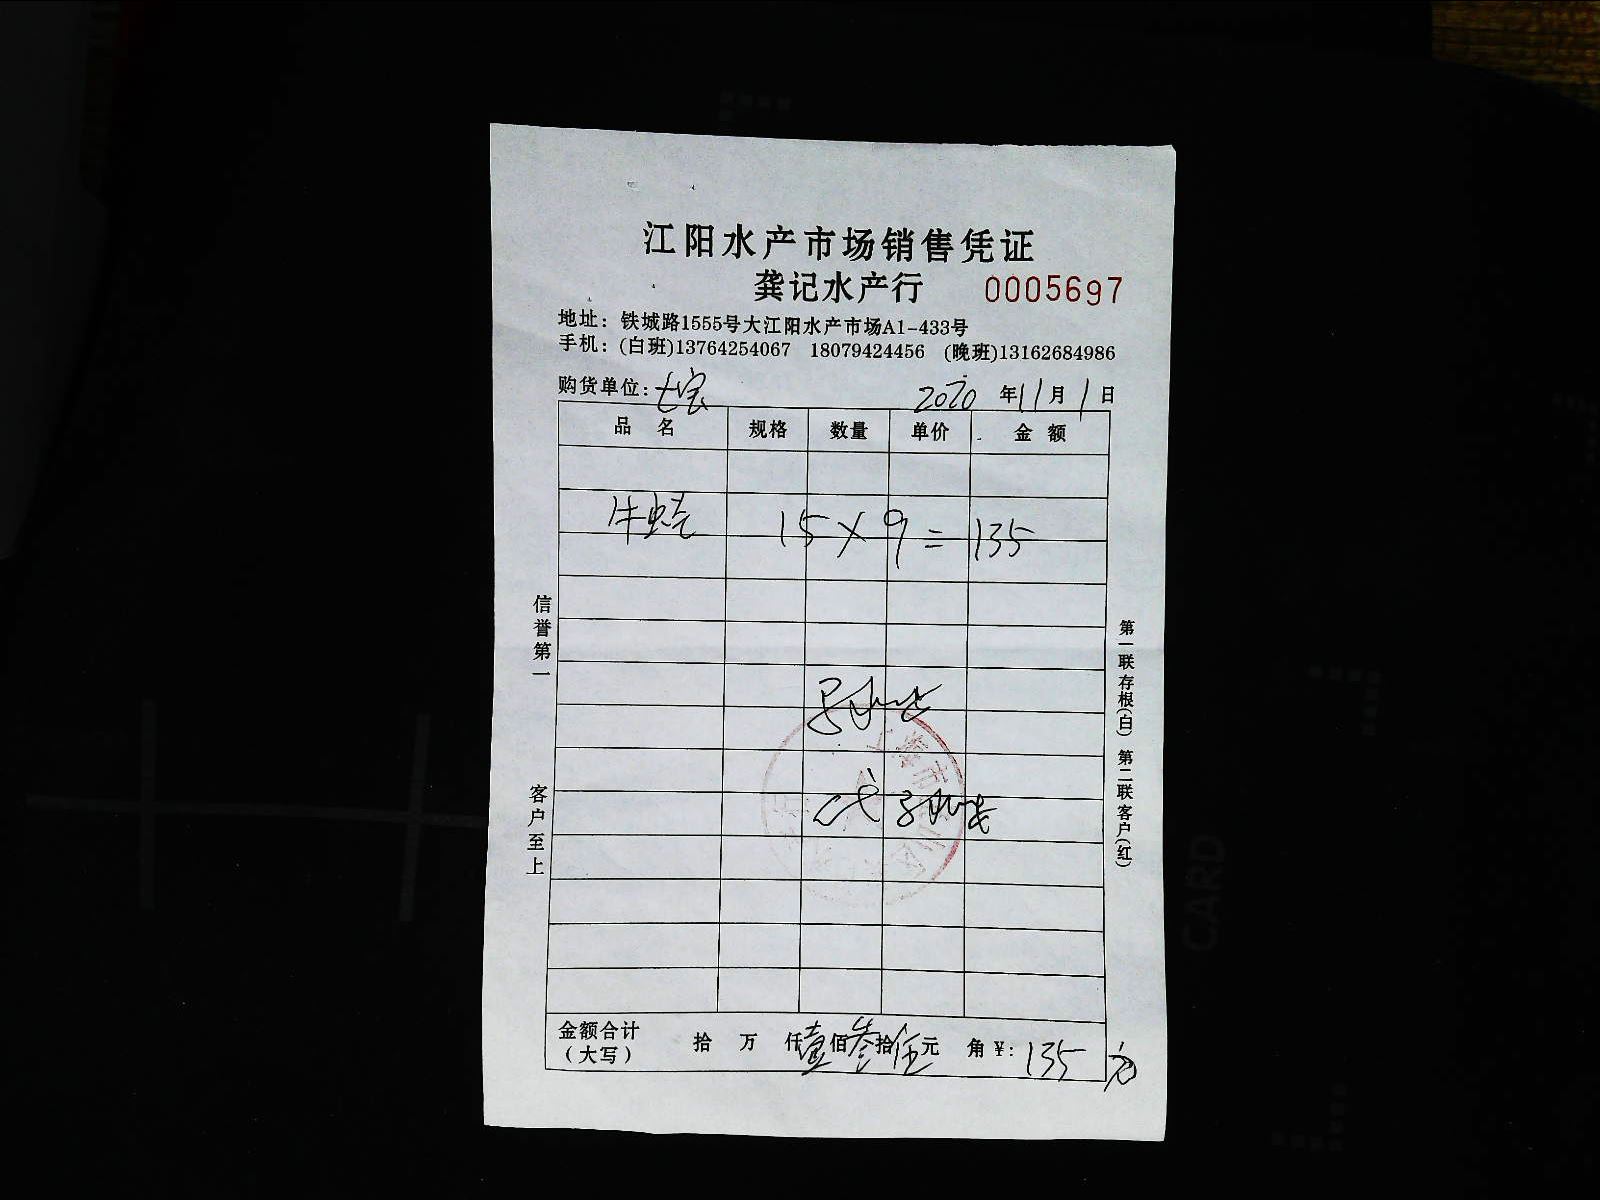 江阳水产市场销售凭证
龚记水产行 0005697
地址：铁城路1555号大江阳水产市场A1-433号
手机：(白班)13764254067 18079424456 (晚班)13162684986
购货单位：七宝 2020 年 11 月 1 日
品名 规格 数量 单价 金额
牛蛙 15 × 9 = 135
信誉第一
客户至上
第一联存根(白) 第二联客户(红)
上海市
代
金额合计 拾 万 仟 壹 佰 叁 拾 伍 元 角 ¥: 135 元
(大写)
CARD